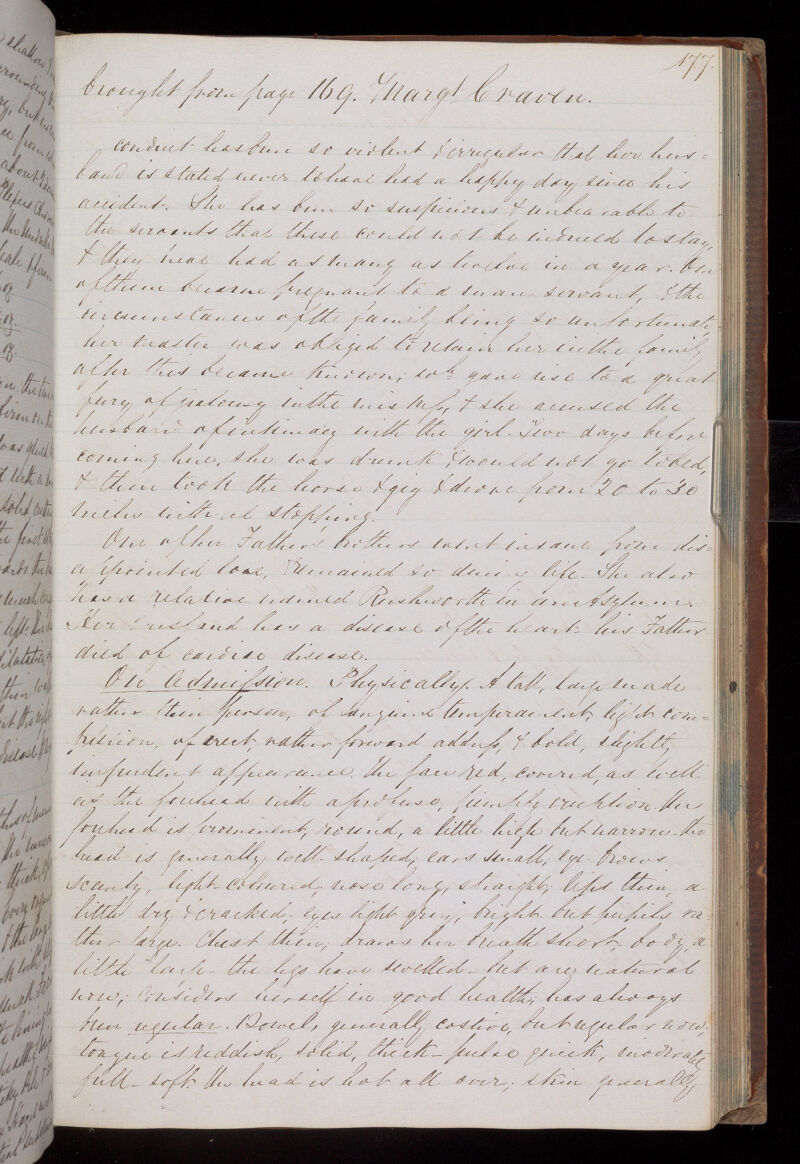 177.
brought from page 169. Margt Craven.
conduct has been so violent & irregular that her hus=
band is stated never to have had a happy day since his
accident. She has been so suspicious & unbearable to
the servants that these could not be induced to stay,
& they have had as many as twelve in a year. One
of them became pregnant to a man servant, & the
circumstances of the family being so unfortunate,
her master was obliged to retain her in the family
after this became known; wch gave rise to a great
fury of jealousy in the mistress, & she accused the
husband of intimacy with the girl. Two days before
coming here, she was drunk & would not go to bed,
& then took the horse & gig & drove from 20 to 30
miles without stopping.
One of her Father's brothers went insane from dis=
appointed love, & remained so during life. She also
has a relative named Rushworth in an Asylum.
Her husband has a disease of the heart - his Father
died of cardiac disease.
On Admission. Physically. A tall, large made
rather thin person, of sanguine temperament, light com=
plexion, of erect rather forward address, & bold, slightly
impudent appearance. The face red, covered, as well
as the forehead with a profuse, pimply eruption. Her
forehead is prominent, round, a little high but narrow - the
head is generally well shaped; ears small; eye brows
scanty, light coloured, nose long, straight; lips thin, a
little dry & cracked; eyes light grey, bright but pupils ra=
ther large. Chest thin, draws her breath short, body a
little large - the legs have swelled - but are natural
now; considers herself in good health; has always
been regular. Bowels generally costive, but regular now;
tongue is reddish, solid, thick - pulse quick, moderately
full - soft. The head is hot all over; skin generally